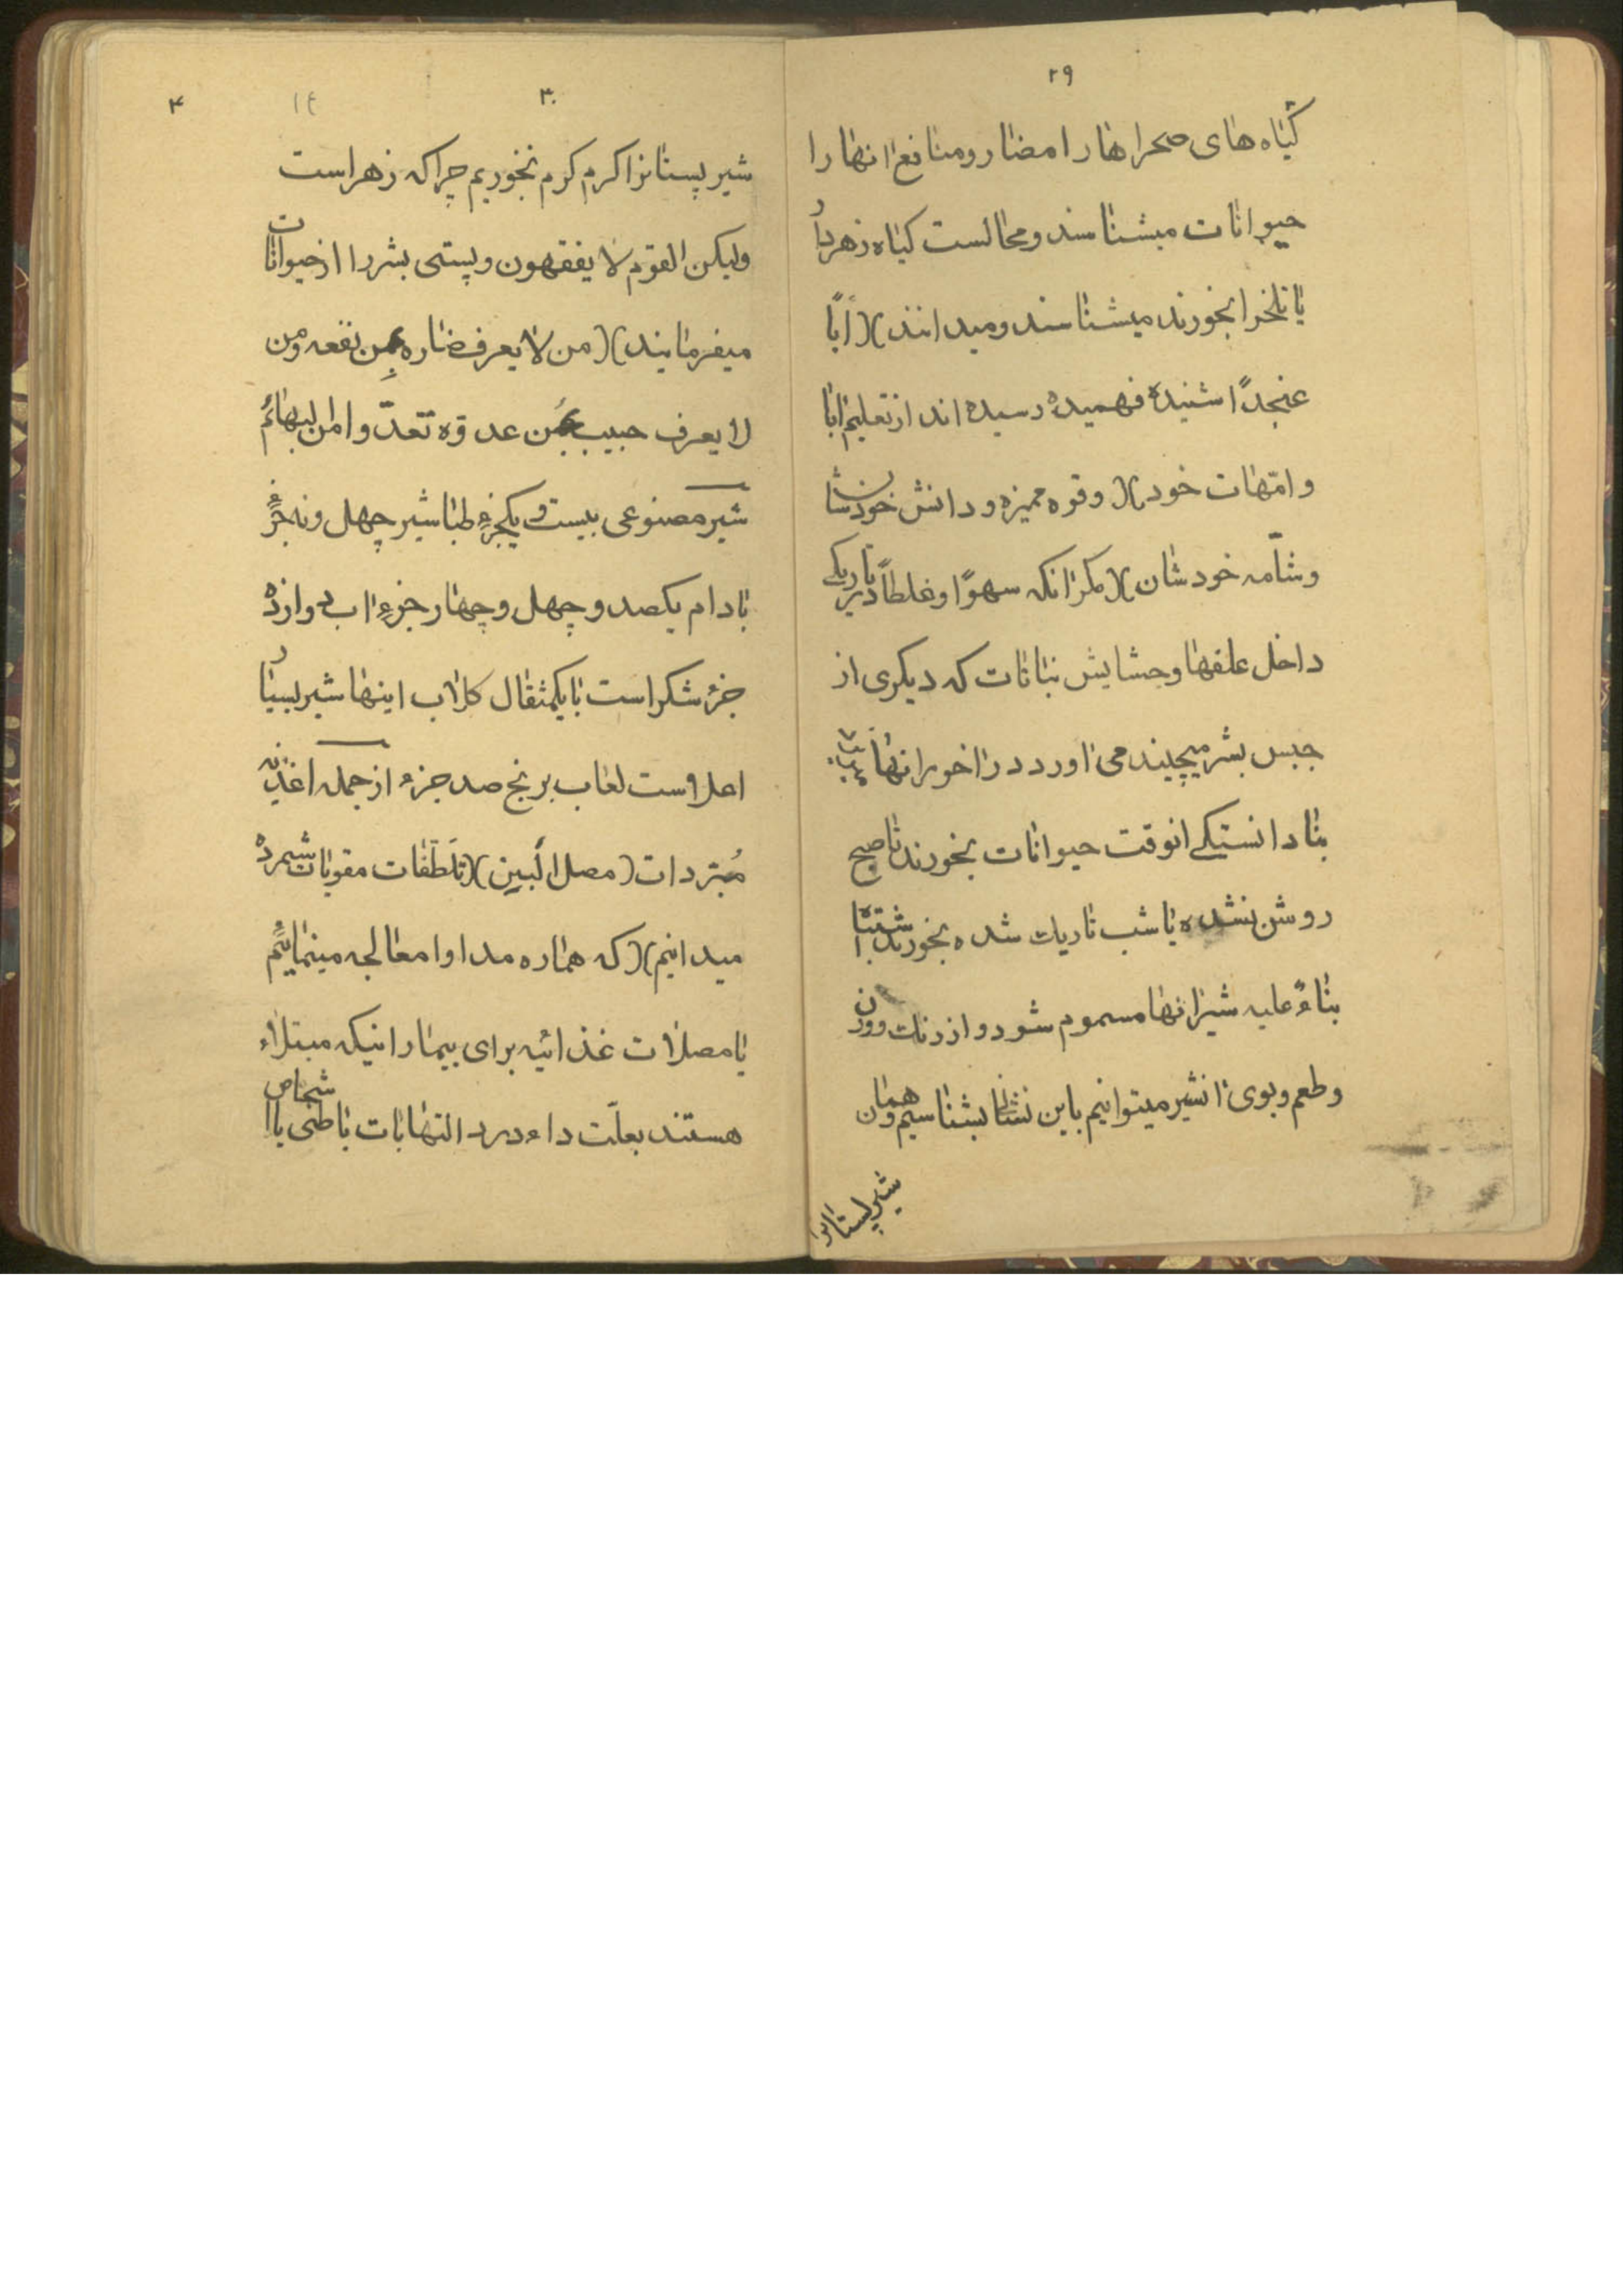 ۲۹
گیاه های صحراها را مضار و منافع انها را
حیوانات میشناسند و محالست کیاه زهردار
یا تلخرا بخورند میشناسند و میدانند )( اَبًا
عنجدًا شنیده فهمیده رسیده اند از تعلیم ابا
و امّهات خود )( و قوه ممیزه و دانش خودشان
و شامّه خودشان )( مکر انکه سهوًا و غلطاً در تاریکی
داخل علفها و حشایش نباتات که دیکری از
جنس بشر میچیند می اورد در اخور انها
بنادانستیکی انوقت حیوانات بخورند تا صبح
روشن نشده یا شب تاریک شده بخورند اشتباها
بناءً علیه شیر انها مسموم شود و از رنک و وزن
و طعم و بوی انشیر میتوانیم باین نشانی بشناسیم و همان
شیر پستانرا
۳۰
۱٤
۴
شیر پستانرا کرم کرم نخوریم چرا که زهر است
ولیکن القوم لا یفقهون و پستی بشر را از حیوانات
میفرمایند )( من لا یعرف ضاره من نفعه و من
لا یعرف حبیبه من عدوه تعدّ و امن البهائم
شیر مصنوعی بیست و یکجزء طباشیر چهل و نه جزء
بادام یکصد و چهل و چهار جزء اب دوازده
جزء شکر است با یکمثقال کلاب اینها شیر بسیار
اعلا است لعاب برنج صد جزء از جمله اغذیه
مُبتردات ( مصل البین )( تلطّفات مقویات شمرده
میدانیم )( که هماره مداوا معالجه مینماییم
با مصلات غذائیه برای بیمارانیکه مبتلاء
هستند بعلّت داء درد التهابات باطنی یا اشخاص